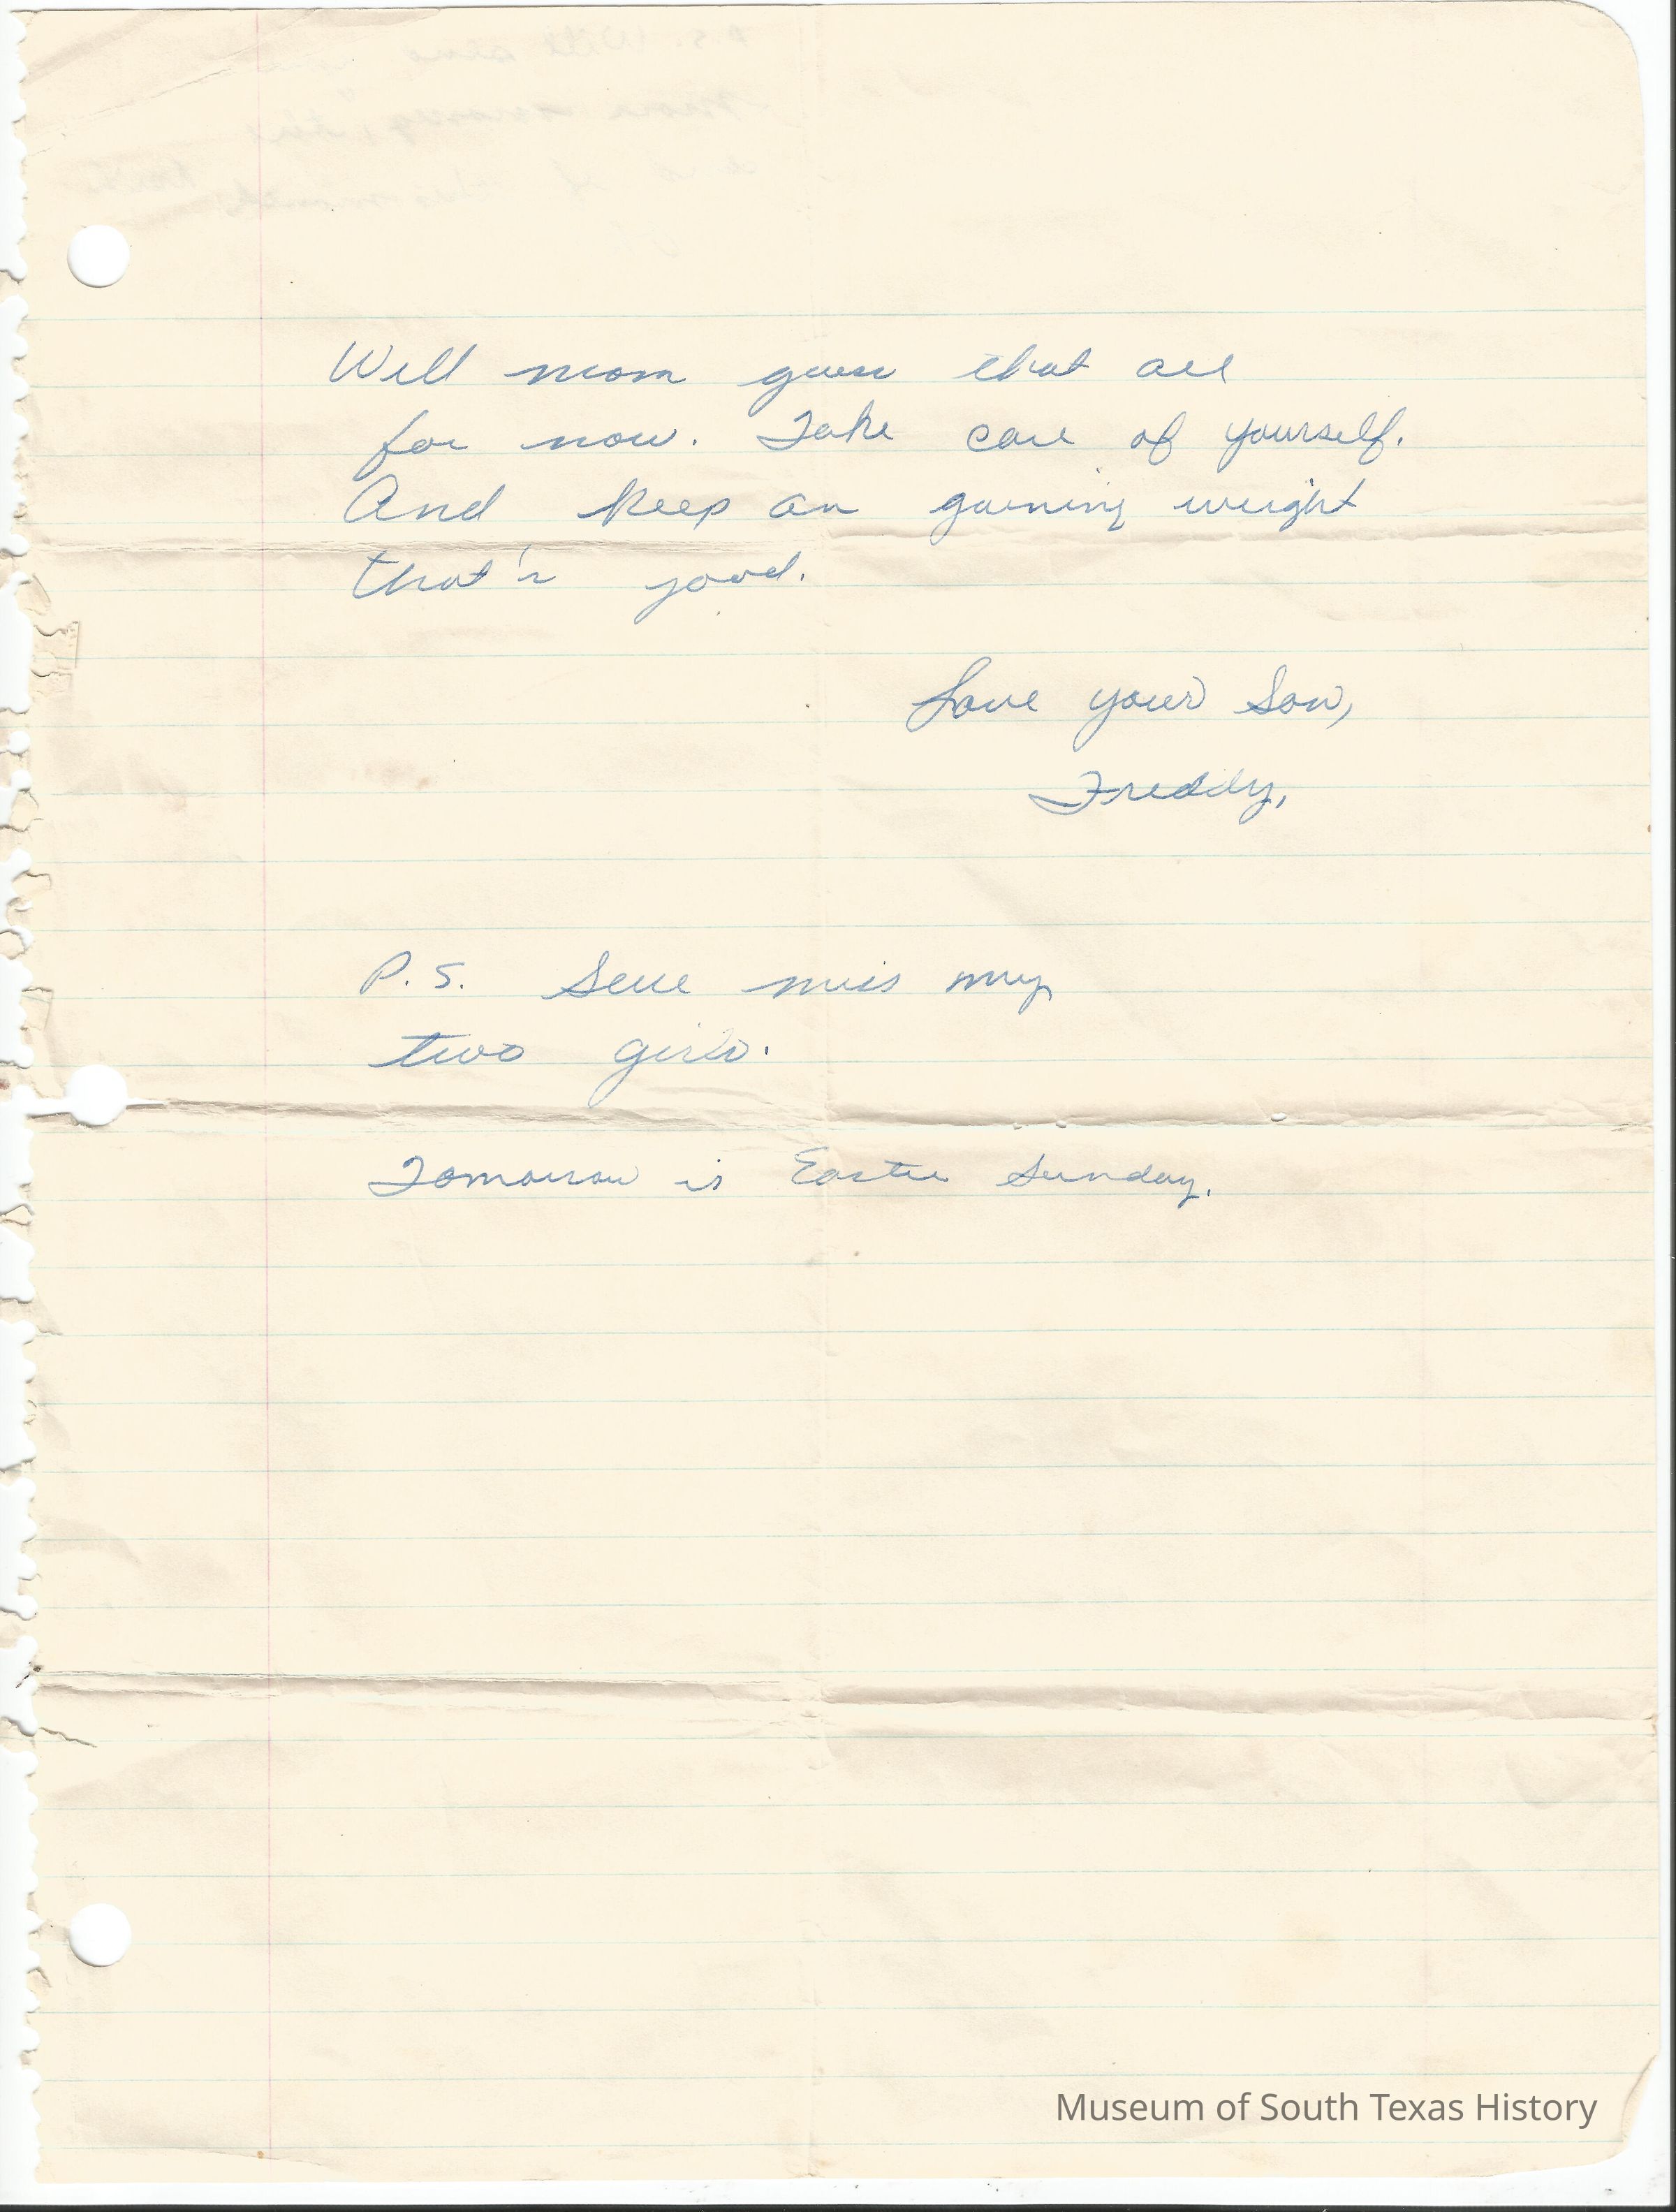 Well mom guess that all
for now. Take care of yourself.
And keep on gaining weight
that's good.
Love your Son,
Freddy,
P.S. Sure miss my
two girls.
Tomorrow is Easter Sunday.
Museum of South Texas History